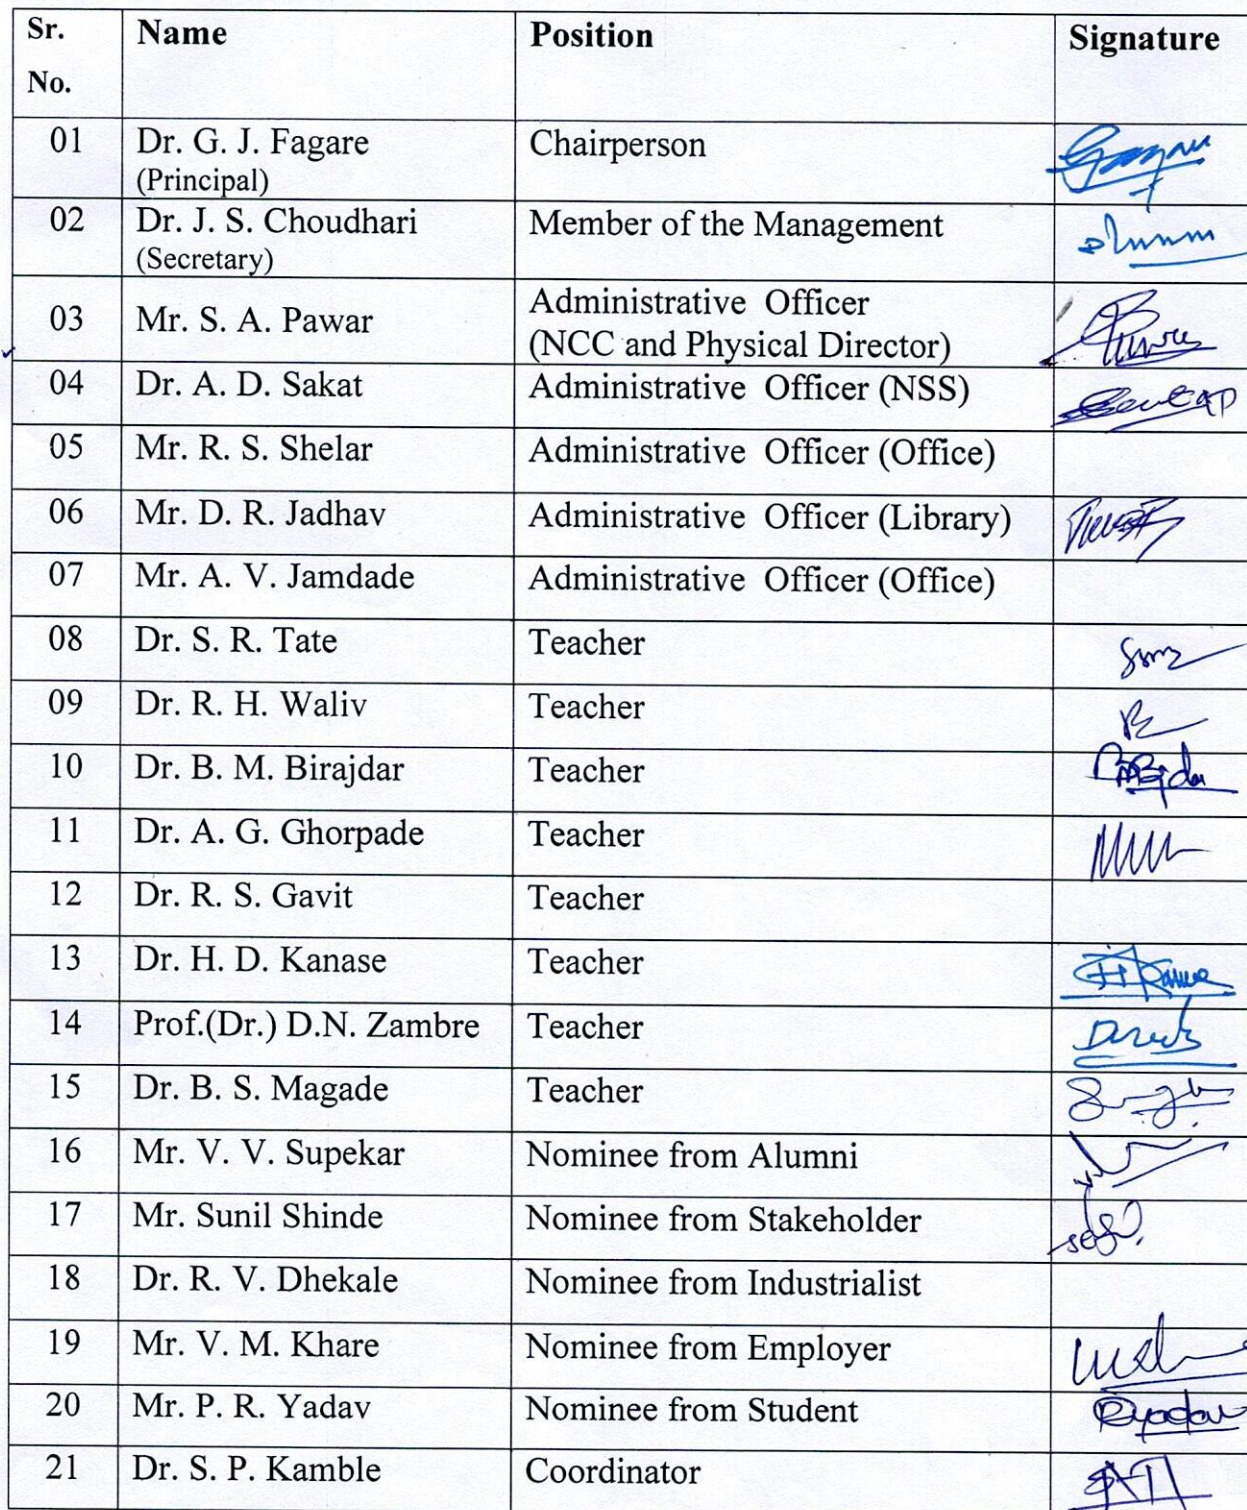 Sr. No. Name Position Signature
01 Dr. G. J. Fagare Chairperson
(Principal)
02 Dr. J. S. Choudhari Member of the Management
(Secretary)
03 Mr. S. A. Pawar Administrative Officer
(NCC and Physical Director)
04 Dr. A. D. Sakat Administrative Officer (NSS)
05 Mr. R. S. Shelar Administrative Officer (Office)
06 Mr. D. R. Jadhav Administrative Officer (Library)
07 Mr. A. V. Jamdade Administrative Officer (Office)
08 Dr. S. R. Tate Teacher
09 Dr. R. H. Waliv Teacher
10 Dr. B. M. Birajdar Teacher
11 Dr. A. G. Ghorpade Teacher
12 Dr. R. S. Gavit Teacher
13 Dr. H. D. Kanase Teacher
14 Prof.(Dr.) D.N. Zambre Teacher
15 Dr. B. S. Magade Teacher
16 Mr. V. V. Supekar Nominee from Alumni
17 Mr. Sunil Shinde Nominee from Stakeholder
18 Dr. R. V. Dhekale Nominee from Industrialist
19 Mr. V. M. Khare Nominee from Employer
20 Mr. P. R. Yadav Nominee from Student
21 Dr. S. P. Kamble Coordinator